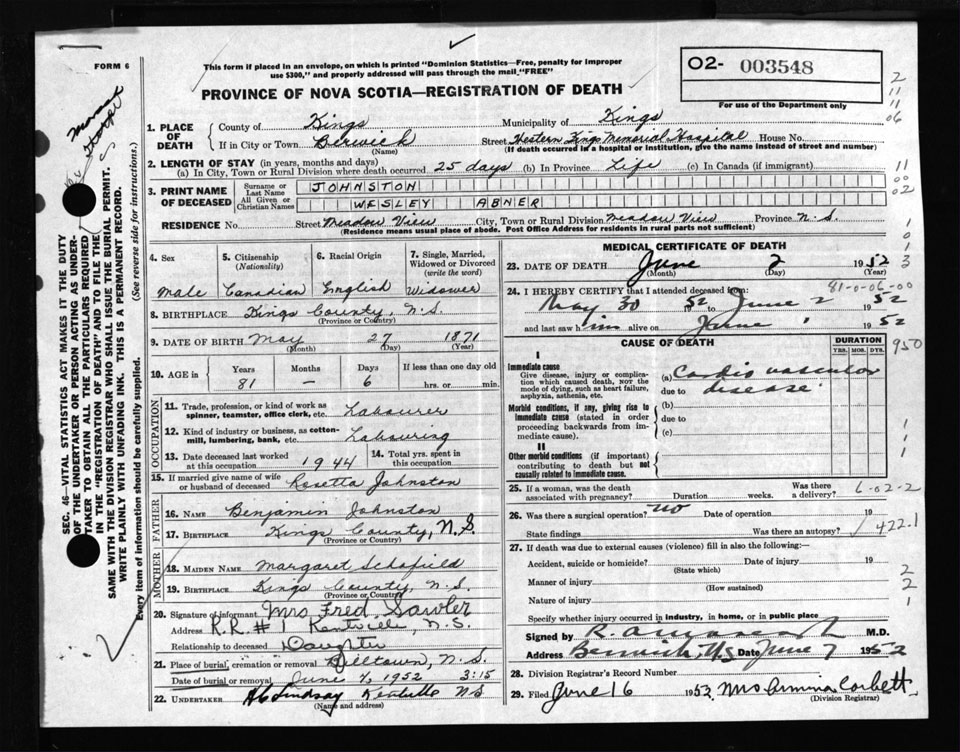 FORM 6
This form if placed in an envelope, on which is printed "Dominion Statistics—Free, penalty for improper
use $300," and properly addressed will pass through the mail "FREE"
PROVINCE OF NOVA SCOTIA—REGISTRATION OF DEATH
O2- 003548
For use of the Department only
2
11
11
06
1. PLACE OF DEATH
County of Kings Municipality of Kings
If in City or Town Berwick (Name) Street Western Kings Memorial Hospital House No.
(If death occurred in a hospital or institution, give the name instead of street and number)
2. LENGTH OF STAY (in years, months and days)
(a) In City, Town or Rural Division where death occurred 25 days (b) In Province Life (c) In Canada (if immigrant)
11
00
02
3. PRINT NAME OF DECEASED
Surname or Last Name JOHNSTON
All Given or Christian Names WESLEY ABNER
RESIDENCE No. Street Meadow View City, Town or Rural Division Meadow View Province N.S.
(Residence means usual place of abode. Post Office Address for residents in rural parts not sufficient)
4. Sex Male
5. Citizenship (Nationality) Canadian
6. Racial Origin English
7. Single, Married, Widowed or Divorced (write the word) Widower
8. BIRTHPLACE Kings County, N.S.
(Province or Country)
9. DATE OF BIRTH May 27 1871
(Month) (Day) (Year)
10. AGE in Years 81 Months — Days 6 If less than one day old hrs. or min.
OCCUPATION
11. Trade, profession, or kind of work as spinner, teamster, office clerk, etc. Labourer
12. Kind of industry or business, as cotton-mill, lumbering, bank, etc. Labouring
13. Date deceased last worked at this occupation 1944 14. Total yrs. spent in this occupation
15. If married give name of wife or husband of deceased Rosetta Johnston
FATHER
16. NAME Benjamin Johnston
17. BIRTHPLACE Kings County, N.S.
(Province or Country)
MOTHER
18. MAIDEN NAME Margaret Schofield
19. BIRTHPLACE Kings County, N.S.
(Province or Country)
20. Signature of informant Mrs Fred Sawler
Address R.R. #1 Kentville, N.S.
Relationship to deceased Daughter
21. Place of burial, cremation or removal Billtown, N.S.
Date of burial or removal June 4, 1952 3:15
22. UNDERTAKER Lindsay Kentville N.S.
(Name and address)
MEDICAL CERTIFICATE OF DEATH
23. DATE OF DEATH June 2 1952
(Month) (Day) (Year)
81-0-06-00
24. I HEREBY CERTIFY that I attended deceased from:
May 30 1952 to June 2 1952
and last saw him alive on June 1 1952
CAUSE OF DEATH
DURATION
YRS. MOS. DYS.
950
I
Immediate cause
Give disease, injury or complication which caused death, NOT the mode of dying, such as heart failure, asphyxia, asthenia, etc.
(a) Cardio vascular
due to disease
Morbid conditions, if any, giving rise to immediate cause (stated in order proceeding backwards from immediate cause).
(b)
due to
(c)
II
Other morbid conditions (if important) contributing to death but not causally related to immediate cause.
25. If a woman, was the death associated with pregnancy? Duration weeks. Was there a delivery?
6-02-2
26. Was there a surgical operation? no Date of operation 19
State findings Was there an autopsy?
422.1
27. If death was due to external causes (violence) fill in also the following:—
Accident, suicide or homicide? Date of injury 19
(State which)
Manner of injury
(How sustained)
Nature of injury
Specify whether injury occurred in industry, in home, or in public place
Signed by M.D.
Address Berwick, N.S. Date June 7 1952
28. Division Registrar's Record Number
29. Filed June 16 1952 Mrs Armina Corbett
(Division Registrar)
SEC. 46—VITAL STATISTICS ACT MAKES IT THE DUTY
OF THE UNDERTAKER OR PERSON ACTING AS UNDER-
TAKER TO OBTAIN ALL THE PARTICULARS REQUIRED
IN THE "REGISTRATION OF DEATH" AND TO FILE THE
SAME WITH THE DIVISION REGISTRAR WHO SHALL ISSUE THE BURIAL PERMIT.
WRITE PLAINLY WITH UNFADING INK. THIS IS A PERMANENT RECORD.
Every item of information should be carefully supplied. (See reverse side for instructions.)